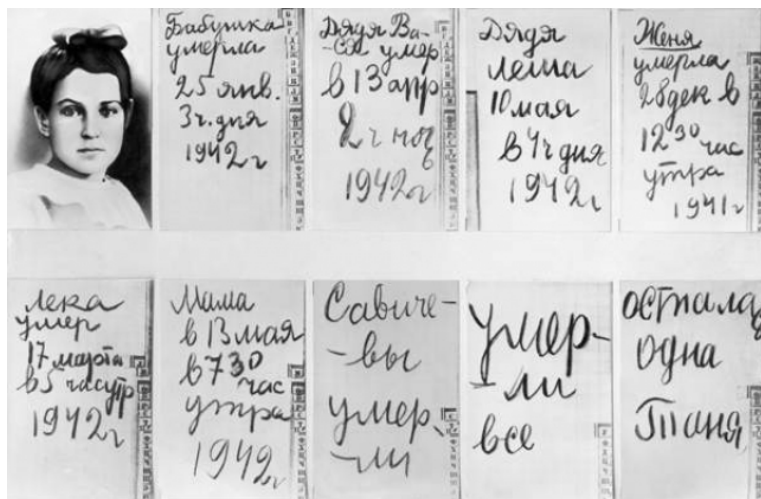 Бабушка
умерла
25 янв.
3ч. дня
1942г
Дядя Ва-
-ся умер
в 13 апр
2 ч ноч
1942г
Дядя
Леша
10 мая
в 4ч дня
1942г
Женя
умерла
28 дек в
12 30 час
утра
1941г
Лека
умер
17 марта
в 5 час утр
1942г
Мама
в 13 мая
в 7 30 час
утра
1942г
Савиче-
-вы
умер-
-ли
умер-
-ли
все
одна
Таня